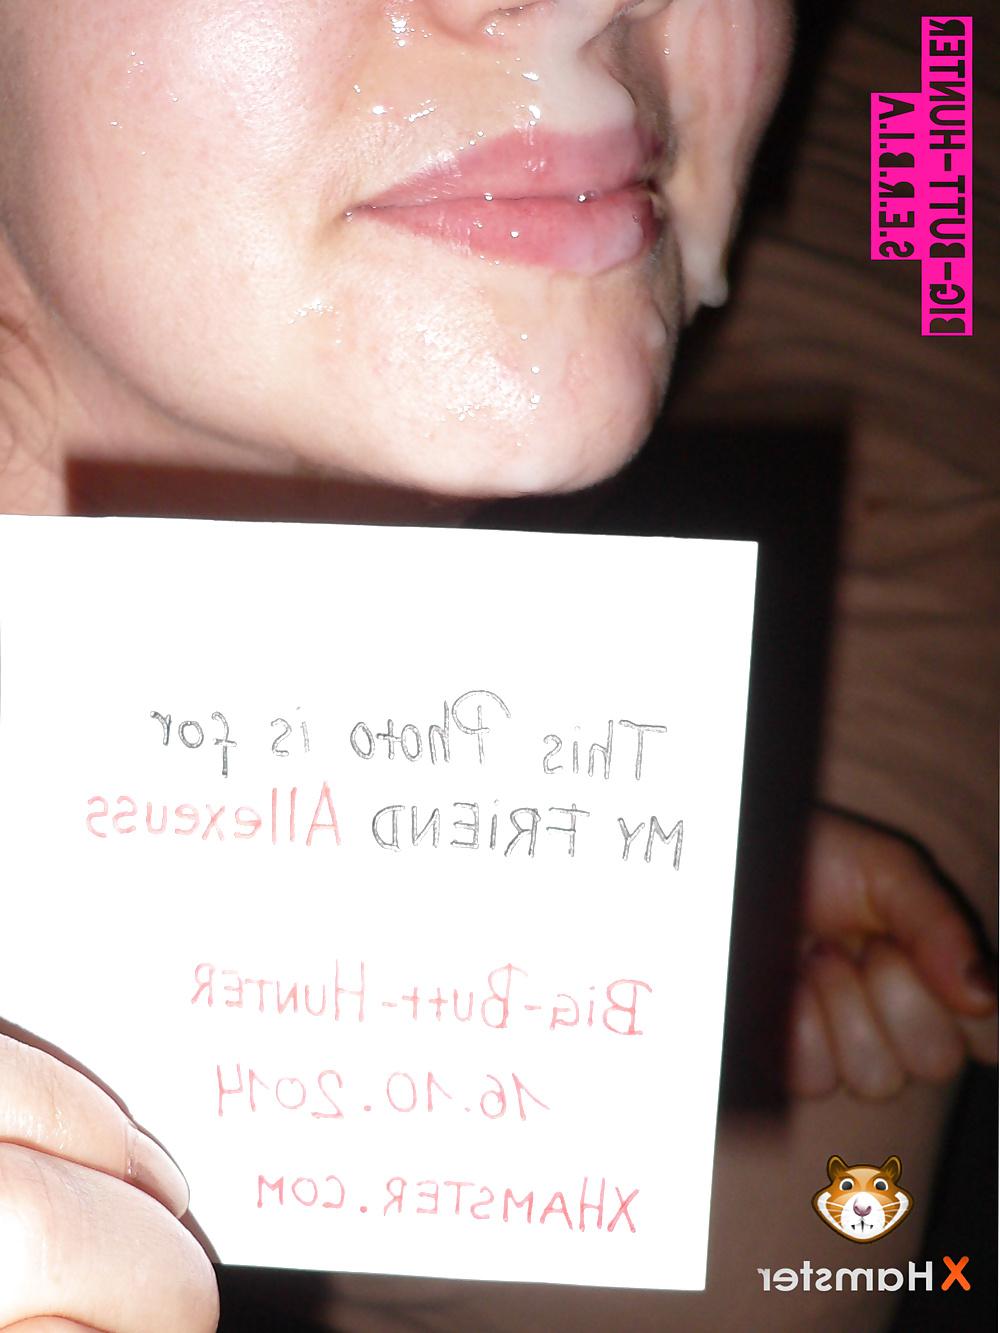 This Photo is for
MY FRiEND Allexeuss
Big-Butt-HunTER
16.10.2014
XHAMSTER.COM
BIG-BUTT-HUNTER
S.E.R.B.I.A
XHamster